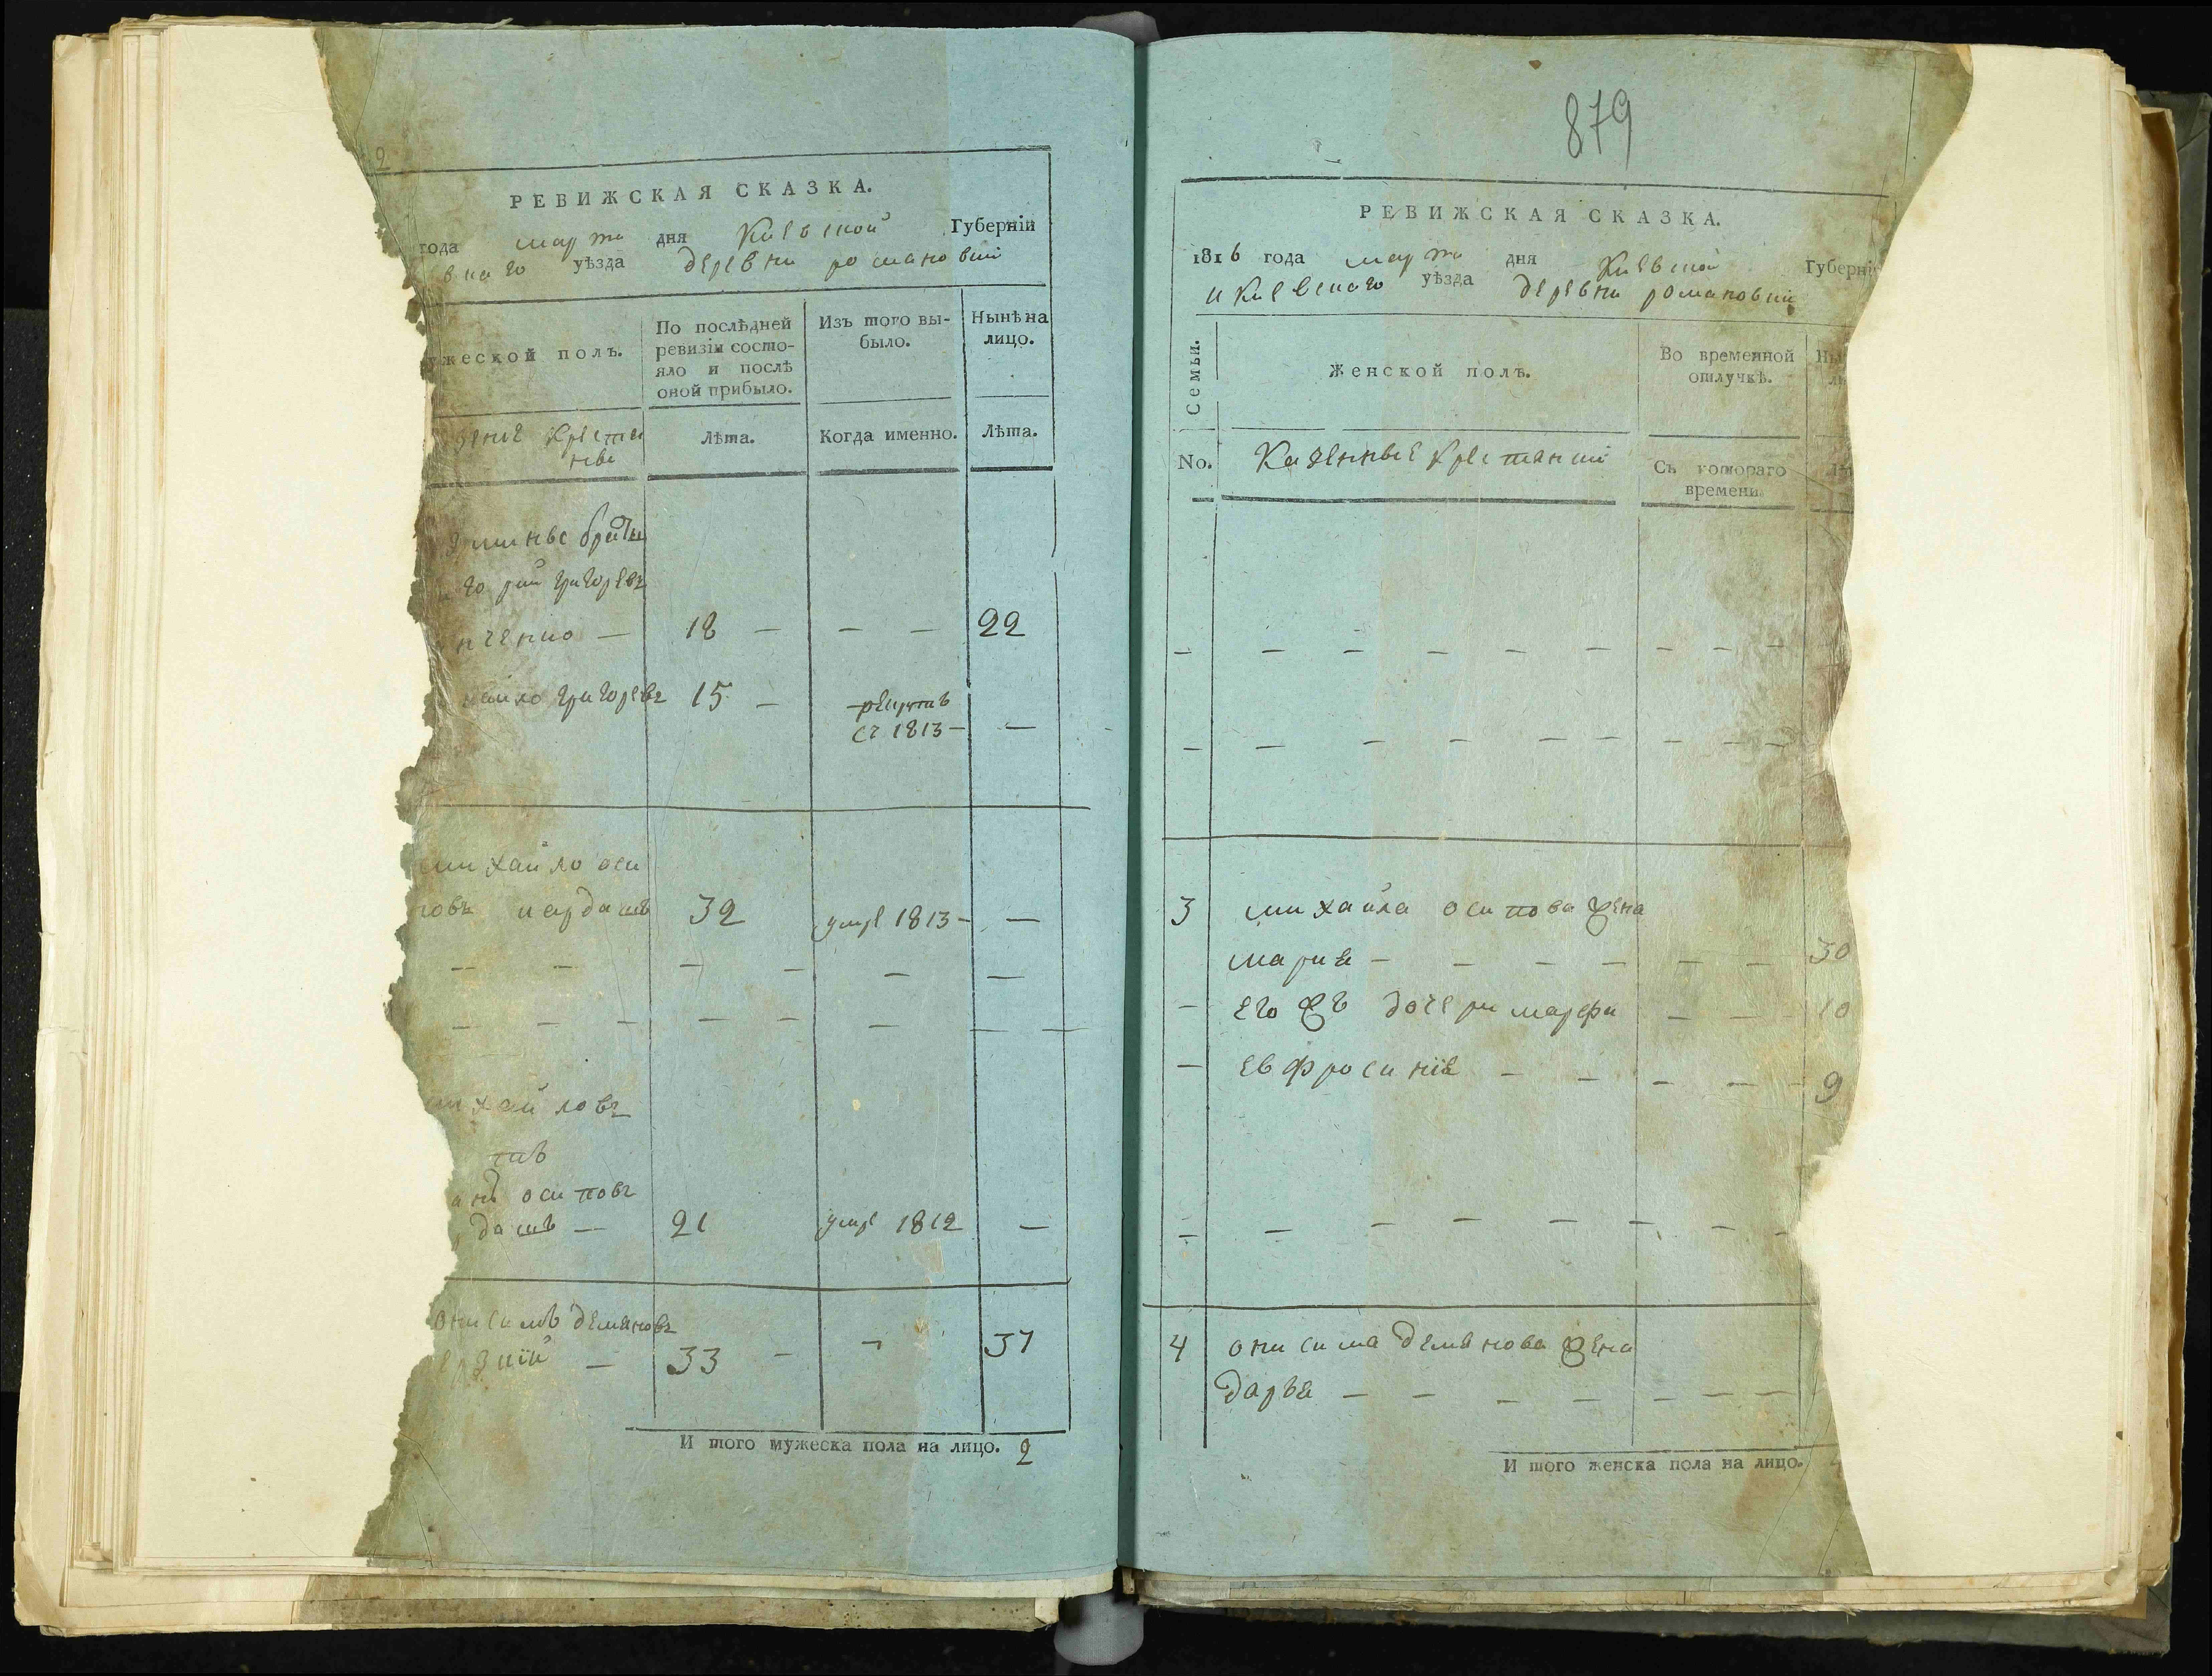 2
РЕВИЖСКАЯ СКАЗКА.
года марта дня Киевской Губерніи
вкаго уѣзда деревни романовки
ужеской полъ.
По послѣдней ревизіи состо-
яло и послѣ
оной прибыло.
Изъ того вы-
было.
Нынѣ на
лицо.
Лѣта.
Когда именно.
Лѣта.
горий григоревъ
нченко — 18 — — — 22
хайло григоревъ 15 — рекрутъ
съ 1813 — —
михайло оси
повъ кардашъ 32 умре 1813 — —
михайловъ
осиповъ
дашъ — 21 умре 1812 —
онисимъ демяновъ
ерзкій — 33 — — 37
И того мужеска пола на лицо. 2
879
РЕВИЖСКАЯ СКАЗКА.
1816 года марта дня Киевской Губерні
и Киевскаго уѣзда деревни романовки
Семьи.
Женской полъ.
Во временной
отлучкѣ.
No.
Казенные крестянки
Съ котораго
времени.
3 михайла осипова жена
мария — — — — — — 30
его жъ дочери марфа — — — 10
— евфросинія — — — — — 9
4 онисима демянова жена
даръя — — — — — — —
И того женска пола на лицо.